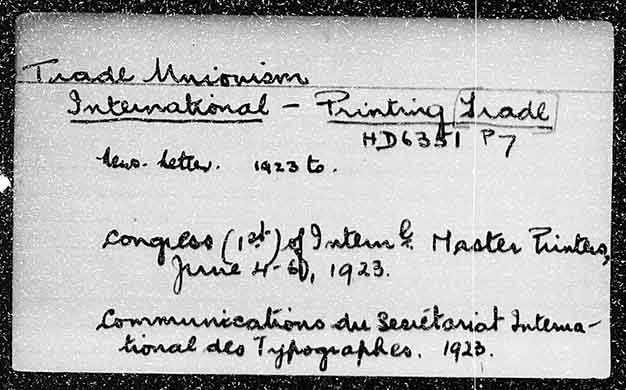 Trade Unionism
International - Printing Trade
HD6351 P7
News-Letter. 1923 to.
Congress (1st) of Internl. Master Printers,
June 4-6, 1923.
Communications du Secrétariat Interna-
tional des Typographes. 1923.